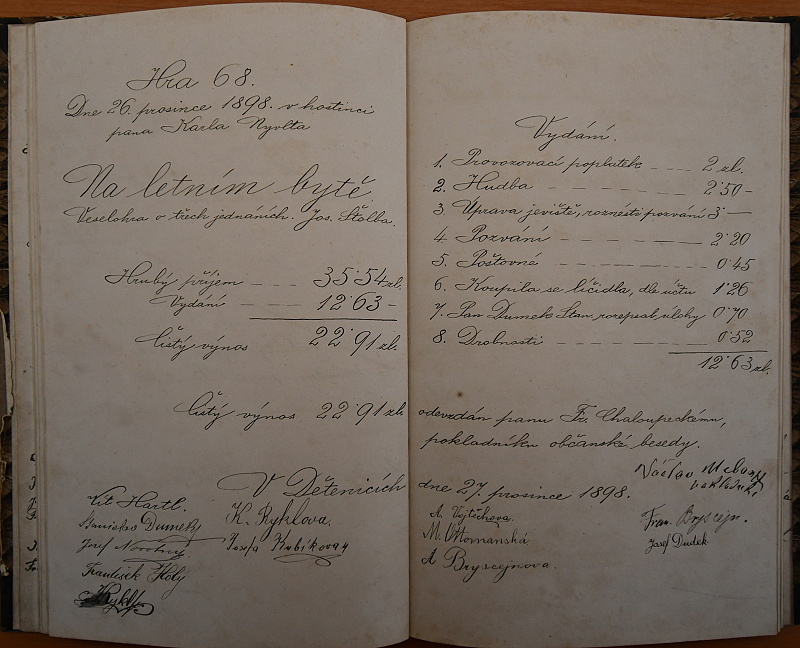 Hra 68.
Dne 26. prosince 1898. v hostinci
pana Karla Nyvlta
Na letním bytě
Veselohra o třech jednáních. Jos. Štolba.
Hrubý příjem --- 35·54 zl.
Vydání --- 12·63 -
Čistý výnos 22·91 zl.
Čistý výnos 22·91 zl.
V Dětenicích
Vít Hartl.
K. Ryklova.
Stanislav Dumek
Josefa Kubíkova
Josef Novotný
František Holy
Vydání.
1. Provozovací poplatek ---- 2 zl.
2. Hudba ---- 2·50 -
3. Úprava jeviště, roznésti pozvání 3 —
4. Pozvání ---- 2·20
5. Poštovné ---- 0·45
6. Koupila se líčidla, dle účtu 1·26
7. Pan Dumek Stan. rozepsal úlohy 0·70
8. Drobnosti ---- 0·52
12·63 zl.
odevzdán panu Fr. Chaloupeckému,
pokladníku občanské besedy.
Václav
pokladník
dne 27. prosince 1898.
A. Vojtěchova.
Fran. Bryscejn.
M.
Josef Dudek
A Bryscejnova.